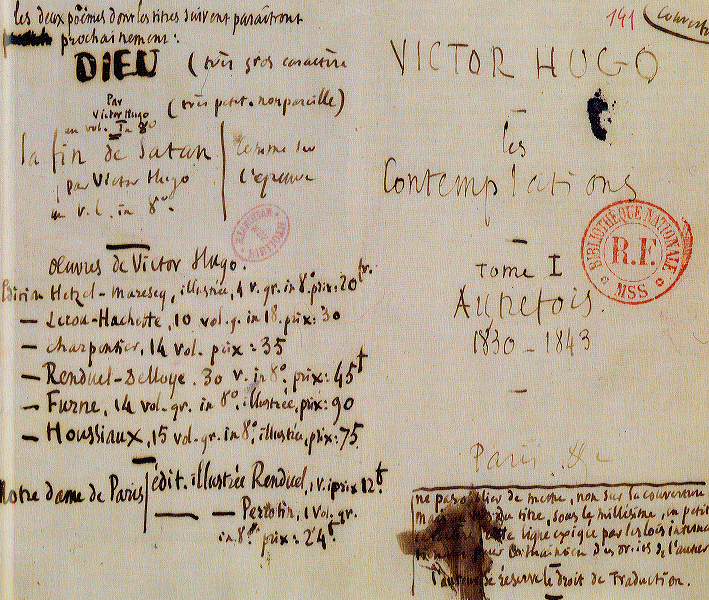 les deux poëmes dont les titres suivent paraîtront
prochainement :
DIEU (très gros caractère
Par
Victor Hugo (très petit. nonpareille)
un vol. In 8º
la fin de Satan
par Victor Hugo
un vol. in 8º.
comme sur
l'épreuve
œuvres de Victor Hugo.
Édition Hetzel-Marescq, illustrée, 4 v. gr. in 8º prix : 20 fr.
— Lecou-Hachette, 10 vol. g. in 18. prix : 30
— Charpentier, 14 vol. prix : 35
— Renduel-Delloye. 30 v. in 8º, prix : 45 f
— Furne, 14 vol. gr. in 8º, illustrée, prix : 90
— Houssiaux, 15 vol. gr. in 8º, illustrée, prix : 75
Notre dame de Paris édit. illustrée Renduel, 1 v. prix 12 f.
— — Perrotin, 1 vol. gr.
in 8º prix : 24 f
191 Couverture
VICTOR HUGO
les
Contemplations
Tome I
Autrefois.
1830 - 1843
BIBLIOTHÈQUE NATIONALE
R.F.
MSS
Paris. &c
ne pas oublier de mettre, non sur la couverture
du titre, sous le millésime, en petit
cette ligne exigée par les lois
pour des droits de l'auteur
l'auteur se réserve le droit de Traduction.